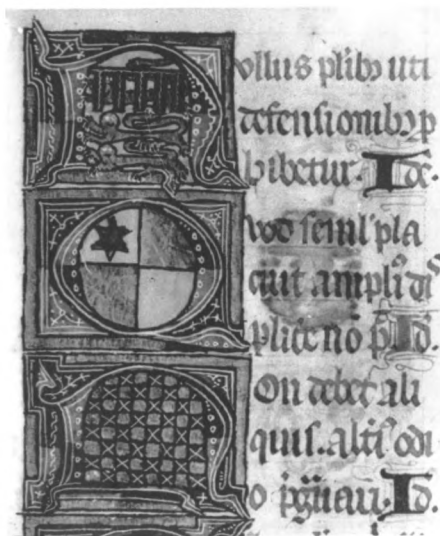 Nullus plib⁊ uti
defensionib⁊ p
hibetur. Ide.
Quod seml' pla
cuit ampli' dis
plice nō p̄t Id.
Non debet ali
quis. alti' odi
o p̄guari. Id.